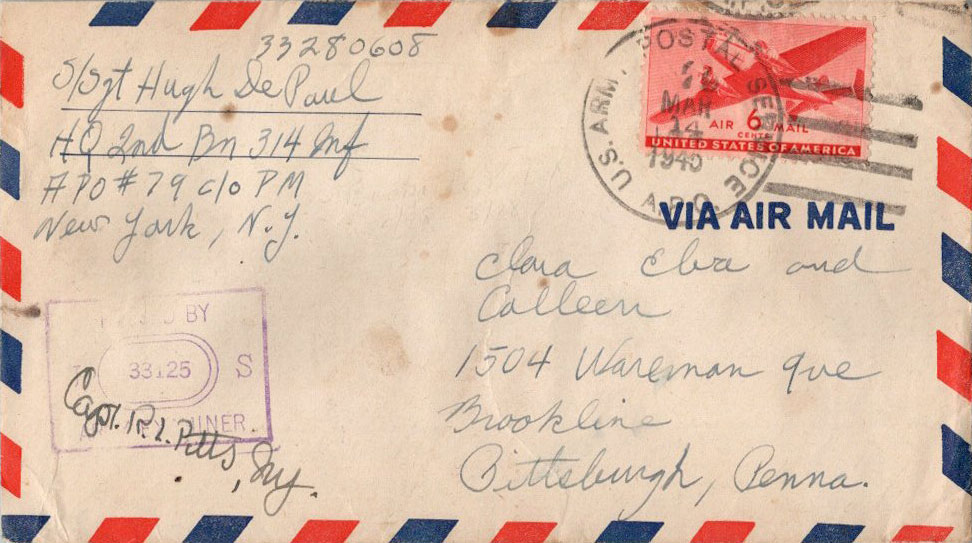 33280608
S/Sgt Hugh De Paul
HQ 2nd Bn 314 Inf
APO #79 c/o PM
New York, N.Y.
U.S. ARMY POSTAL SERVICE
A.P.O.
MAR
14
1945
AIR 6 MAIL
CENTS
UNITED STATES OF AMERICA
VIA AIR MAIL
Clara Elva and
Colleen
1504 Wareman ave
Brookline
Pittsburgh, Penna.
BY
33125 S
Capt. R.L. Pitts, Inf.